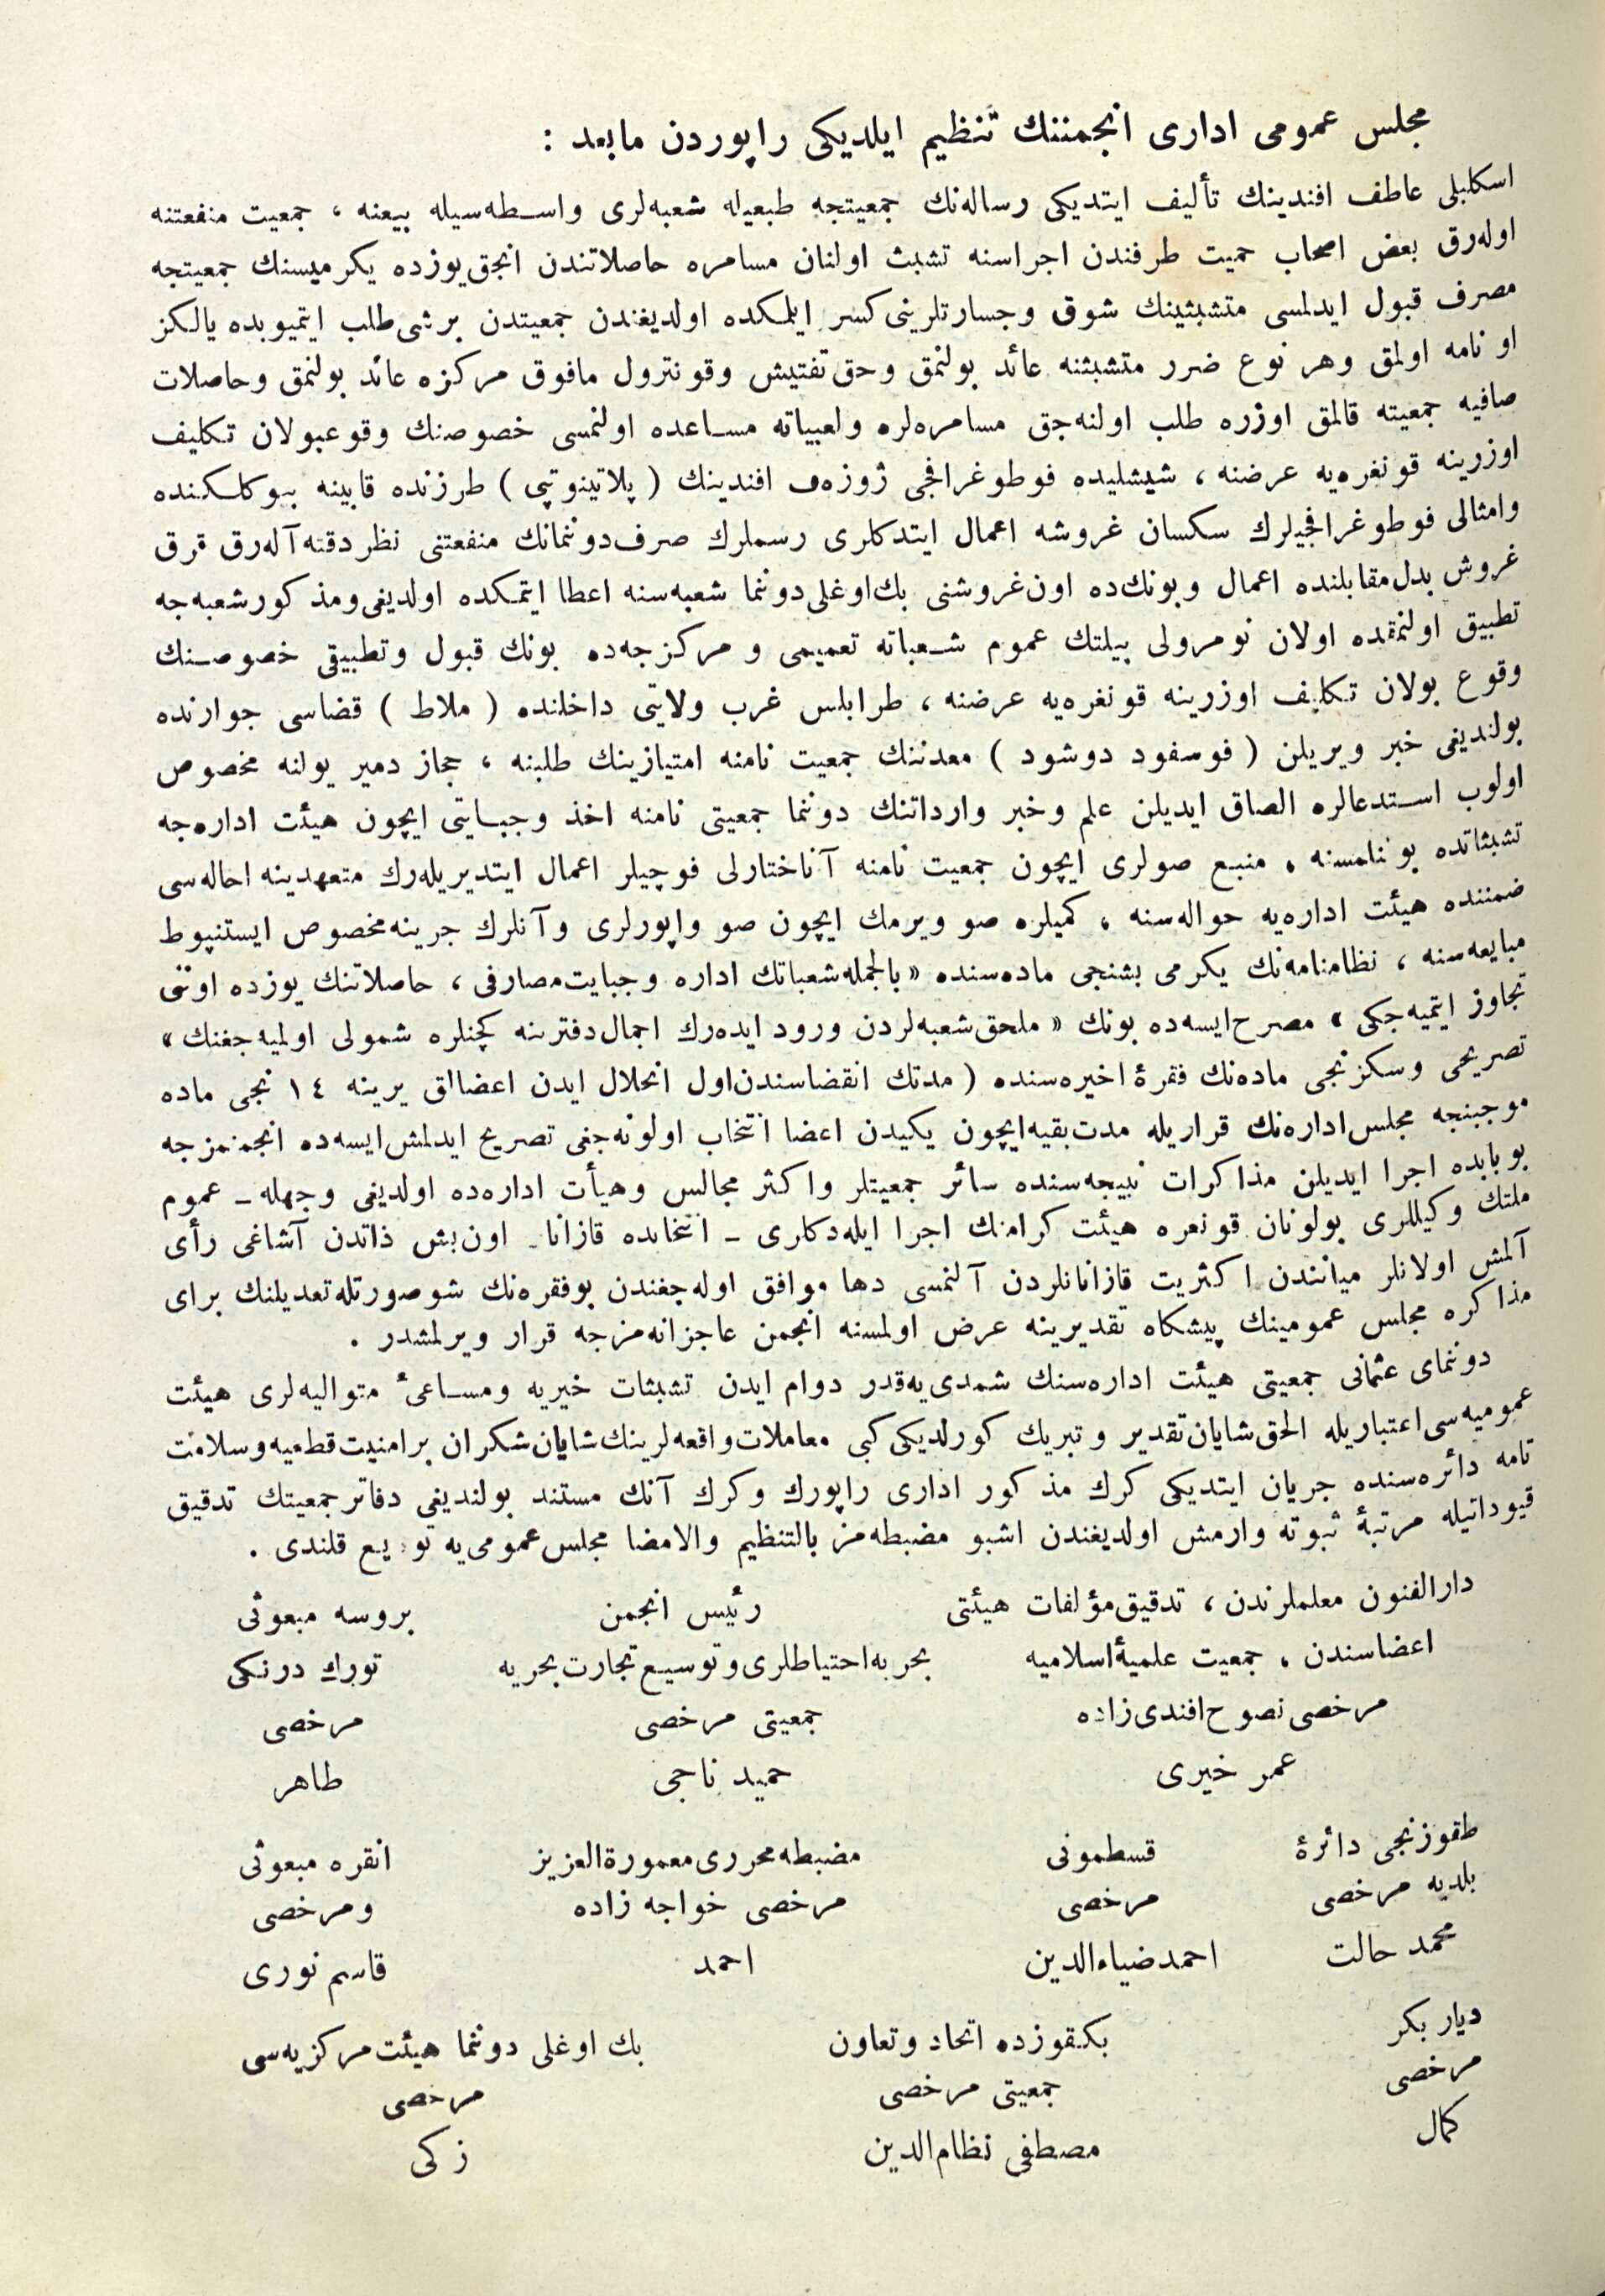 مجلس عمومی اداری انجمننك تنظیم ایلدیكی راپوردن مابعد :
اسكلیلی عاطف افندینك تألیف ایتدیكی رساله‌نك جمعیتجه طبعیله شعبه‌لری واسطه‌سیله بیعنه ، جمعیت منفعتنه
اوله‌رق بعض اصحاب حمیت طرفندن اجراسنه تشبث اولنان مسامره حاصلاتندن انجق یوزده یكرمیسنك جمعیتجه
مصرف قبول ایدلمسی متشبثینك شوق وجسارتلرینی كسر ایلمكده اولدیغندن جمعیتدن برشی طلب ایتمیوبده یالكز
او نامه اولمق وهر نوع ضرر متشبثنه عائد بولنمق وحق تفتیش وقونترول مافوق مركزه عائد بولنمق وحاصلات
صافیه جمعیته قالمق اوزره طلب اولنه‌جق مسامره‌لره ولعبیاته مساعده اولنمسی خصوصنك وقوعبولان تكلیف
اوزرینه قونغره‌یه عرضنه ، شیشلیده فوطوغرافجی ژوزه‌ف افندینك ( پلاتینوتپی ) طرزنده قابینه بیوكلكنده
وامثالی فوطوغرافجیلرك سكسان غروشه اعمال ایتدكلری رسملرك صرف دوننمانك منفعتنی نظر دقته آله‌رق قرق
غروش بدل مقابلنده اعمال وبونك‌ده اون غروشنی بك‌اوغلی دوننما شعبه‌سنه اعطا ایتمكده اولدیغی ومذكور شعبه‌جه
تطبیق اولنمقده اولان نومرولی بیلتك عموم شعباته تعمیمی و مركزجه‌ده بونك قبول وتطبیقی خصوصنك
وقوع بولان تكلیف اوزرینه قونغره‌یه عرضنه ، طرابلس غرب ولایتی داخلنده ( ملاط ) قضاسی جوارنده
بولندیغی خبر ویریلن ( فوسفود دوشود ) معدننك جمعیت نامنه امتیازینك طلبنه ، حجاز دمیر یولنه مخصوص
اولوب استدعالره الصاق ایدیلن علم وخبر وارداتنك دوننما جمعیتی نامنه اخذ وجبایتی ایچون هیئت اداره‌جه
تشبثاتده بولنامسنه ، منبع صولری ایچون جمعیت نامنه آناختارلی فوچیلر اعمال ایتدیریله‌رك متعهدینه احاله‌سی
ضمننده هیئت اداره‌یه حواله‌سنه ، كمیلره صو ویرمك ایچون صو واپورلری وآنلرك جرینه مخصوص ایستنپوط
مبایعه‌سنه ، نظامنامه‌نك یكرمی بشنجی ماده‌سنده « بالجمله شعباتك اداره وجبایت مصارفی ، حاصلاتنك یوزده اوننی
تجاوز ایتمیه‌جكی » مصرح ایسه‌ده بونك « ملحق شعبه‌لردن ورود ایده‌رك اجمال دفترینه كچنلره شمولی اولمیه‌جغنك »
تصریحی وسكزنجی ماده‌نك فقرۀ اخیره‌سنده ( مدتك انقضاسندن اول انحلال ایدن اعضالق یرینه ١٤ نجی ماده
موجبنجه مجلس اداره‌نك قراریله مدت بقیه ایچون یكیدن اعضا انتخاب اولونه‌جغی تصریح ایدلمش ایسه‌ده انجمنمزجه
بوبابده اجرا ایدیلن مذاكرات نتیجه‌سنده سائر جمعیتلر واكثر مجالس وهیأت اداره‌ده اولدیغی وجهله ـ عموم
ملتك وكیللری بولونان قونغره هیئت كرامنك اجرا ایله‌دكلری ـ انتخابده قازانان اون بش ذاتدن آشاغی رأی
آلمش اولانلر میانندن اكثریت قازانانلردن آلنمسی دها موافق اوله‌جغندن بوفقره‌نك شو صورتله تعدیلنك برای
مذاكره مجلس عمومینك پیشكاه تقدیرینه عرض اولمسنه انجمن عاجزانه‌مزجه قرار ویرلمشدر .
دوننمای عثمانی جمعیتی هیئت اداره‌سنك شمدی‌یه‌قدر دوام ایدن تشبثات خیریه ومساعیٔ متوالیه‌لری هیئت
عمومیه‌سی اعتباریله الحق شایان تقدیر وتبریك كورلدیكی كبی معاملات واقعه‌لرینك شایان شكران برامنیت قطعیه وسلامت
تامه دائره‌سنده جریان ایتدیكی كرك مذكور اداری راپورك وكرك آنك مستند بولندیغی دفاتر جمعیتك تدقیق
قیوداتیله مرتبۀ ثبوته وارمش اولدیغندن اشبو مضبطه‌مز بالتنظیم والامضا مجلس عمومی‌یه تودیع قلندی .
دارالفنون معلملرندن ، تدقیق مؤلفات هیئتی رئیس انجمن بروسه مبعوثی
اعضاسندن ، جمعیت علمیۀ اسلامیه بحریه احتیاطلری وتوسیع تجارت بحریه تورك درنكی
مرخصی نصوح افندی زاده جمعیتی مرخصی مرخصی
عمر خیری حمید ناجی طاهر
طقوزنجی دائرۀ قسطمونی مضبطه محرری معمورةالعزیز انقره مبعوثی
بلدیه مرخصی مرخصی مرخصی خواجه زاده ومرخصی
محمد حالت احمد ضیاءالدین احمد قاسم نوری
دیار بكر بكقوزده اتحاد وتعاون بك اوغلی دوننما هیئت مركزیه‌سی
مرخصی جمعیتی مرخصی مرخصی
كمال مصطفی نظام‌الدین زكی